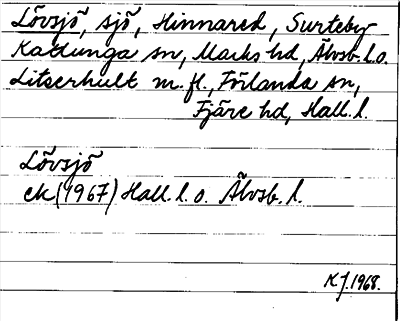 Lövsjö, sjö, Hinnared, Surteby-
Kattunga sn, Marks hd, Älvsb. l. o.
Litserhult m. fl., Förlanda sn,
Fjäre hd, Hall. l.
Lövsjö
ek (1967) Hall. l. o. Älvsb. l.
K J. 1968.